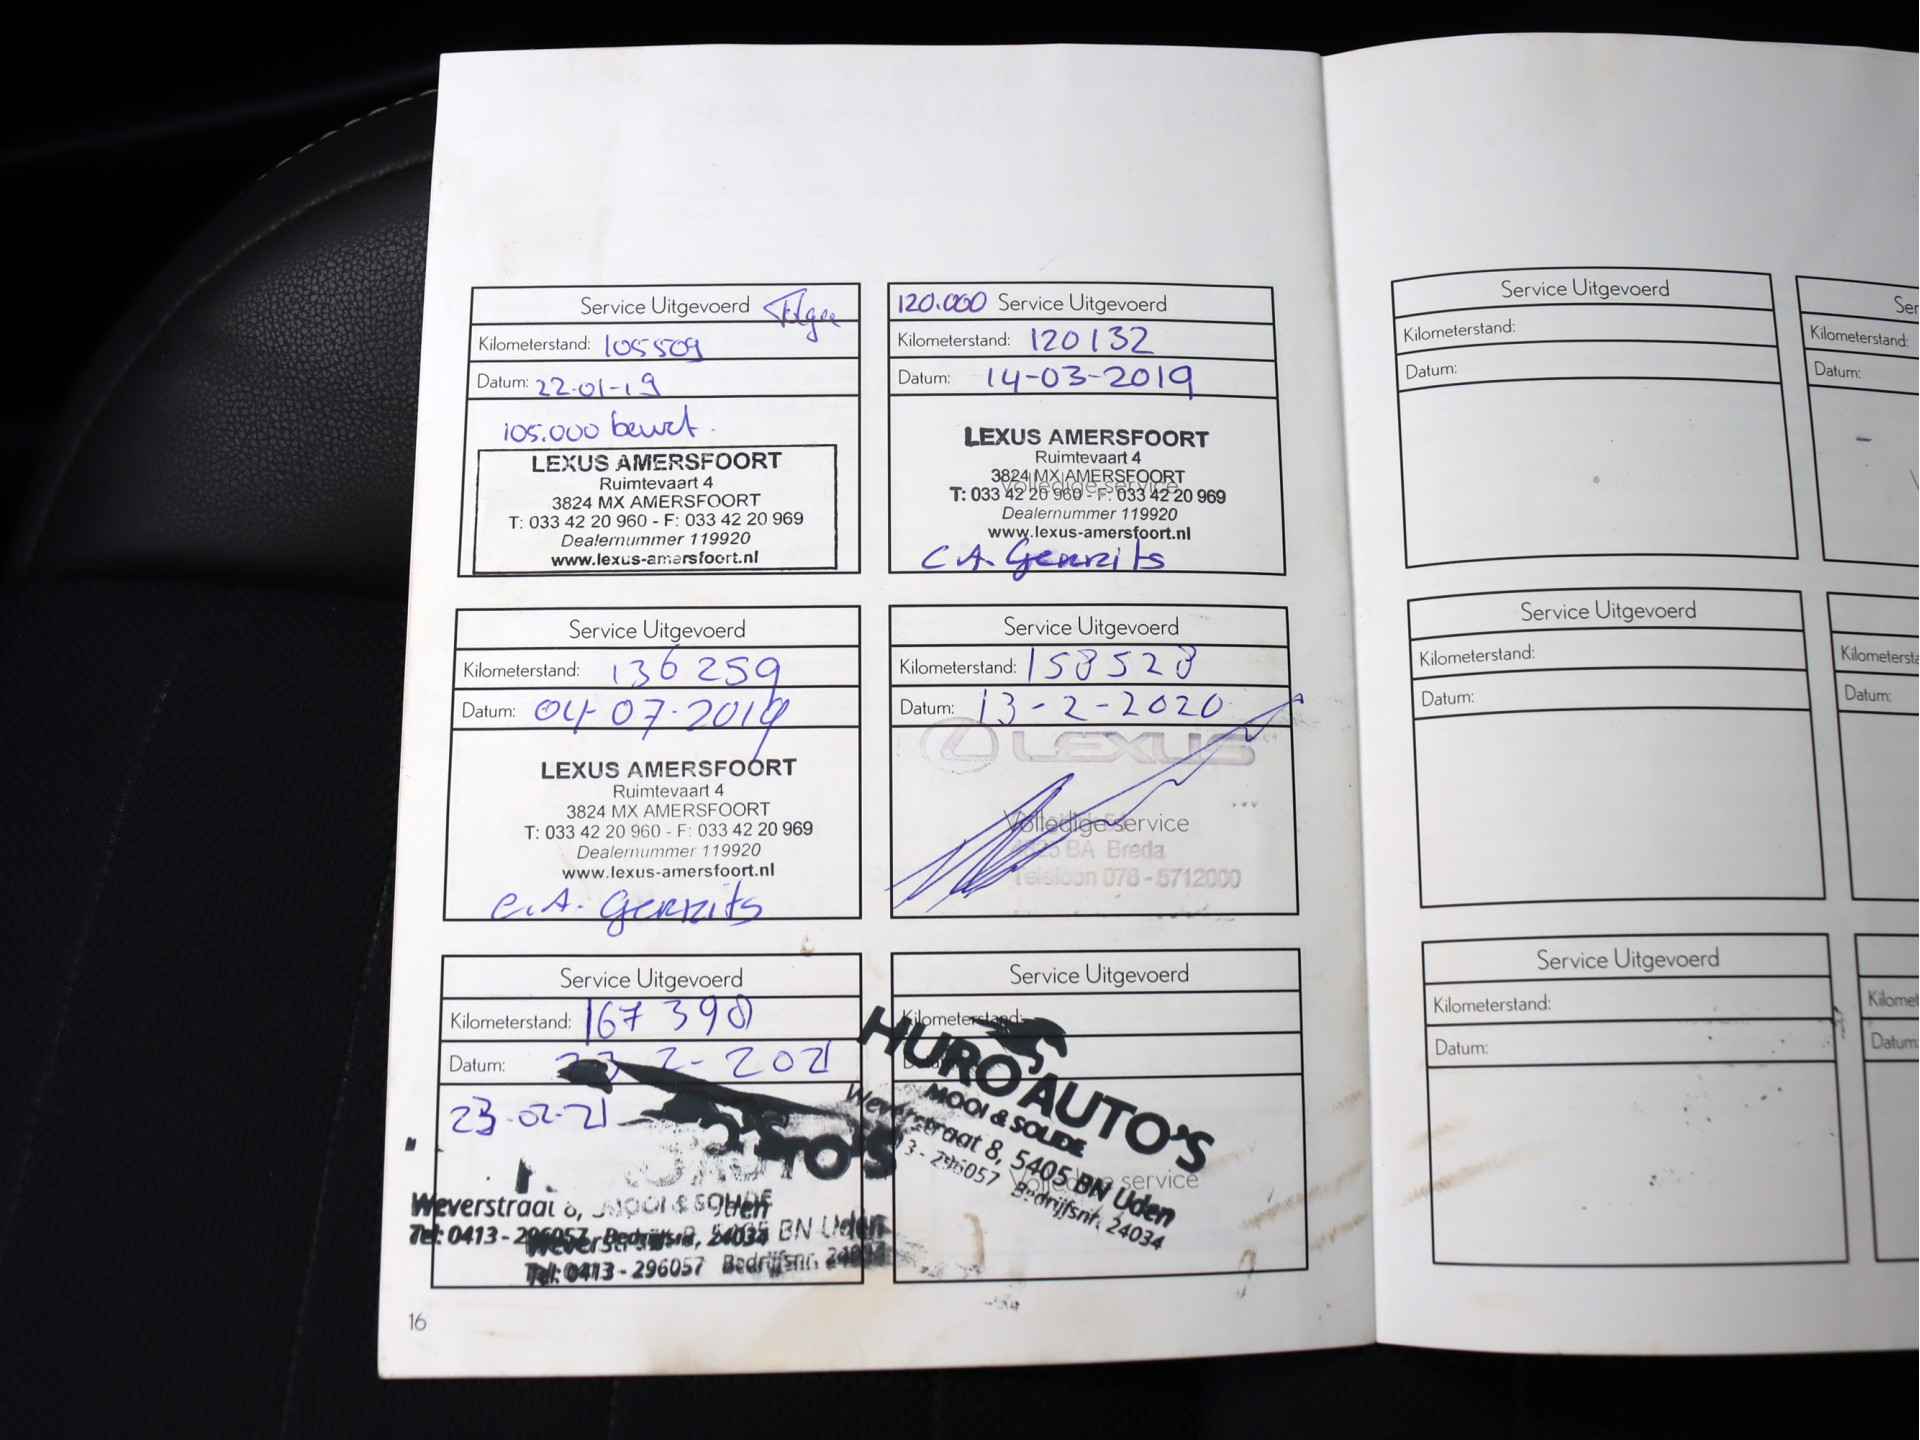 Service Uitgevoerd
Kilometerstand: 105509
Datum: 22-01-19
105.000 beurt.
LEXUS AMERSFOORT
Ruimtevaart 4
3824 MX AMERSFOORT
T: 033 42 20 960 - F: 033 42 20 969
Dealernummer 119920
www.lexus-amersfoort.nl
120.000 Service Uitgevoerd
Kilometerstand: 120132
Datum: 14-03-2019
LEXUS AMERSFOORT
Ruimtevaart 4
3824 MX AMERSFOORT
Volledige service
T: 033 42 20 960 - F: 033 42 20 969
Dealernummer 119920
www.lexus-amersfoort.nl
C.A. Gerrits
Service Uitgevoerd
Kilometerstand: 136259
Datum: 04-07-2019
LEXUS AMERSFOORT
Ruimtevaart 4
3824 MX AMERSFOORT
T: 033 42 20 960 - F: 033 42 20 969
Dealernummer 119920
www.lexus-amersfoort.nl
C.A. Gerrits
Service Uitgevoerd
Kilometerstand: 158528
Datum: 13-2-2020
LEXUS
Volledige service
BA Breda
Telefoon 076 - 5712000
Service Uitgevoerd
Kilometerstand: 167398
Datum: 23 2-2021
23-02-21
Weverstraat 8, MOOI & SOLIDE
Tel: 0413 - 296057 Bedrijfsnr. 24034 5405 BN Uden
Weverstraat
Tel: 0413 - 296057 Bedrijfsnr. 24034
Service Uitgevoerd
Kilometerstand:
HURO AUTO'S
MOOI & SOLIDE
Weverstraat 8, 5405 BN Uden
13 - 296057 Bedrijfsnr. 24034
Volledige service
16
Service Uitgevoerd
Kilometerstand:
Datum:
Ser
Kilometerstand:
Datum:
Service Uitgevoerd
Kilometerstand:
Datum:
Kilometersta
Datum:
Service Uitgevoerd
Kilometerstand:
Datum:
Kilomet
Datum: